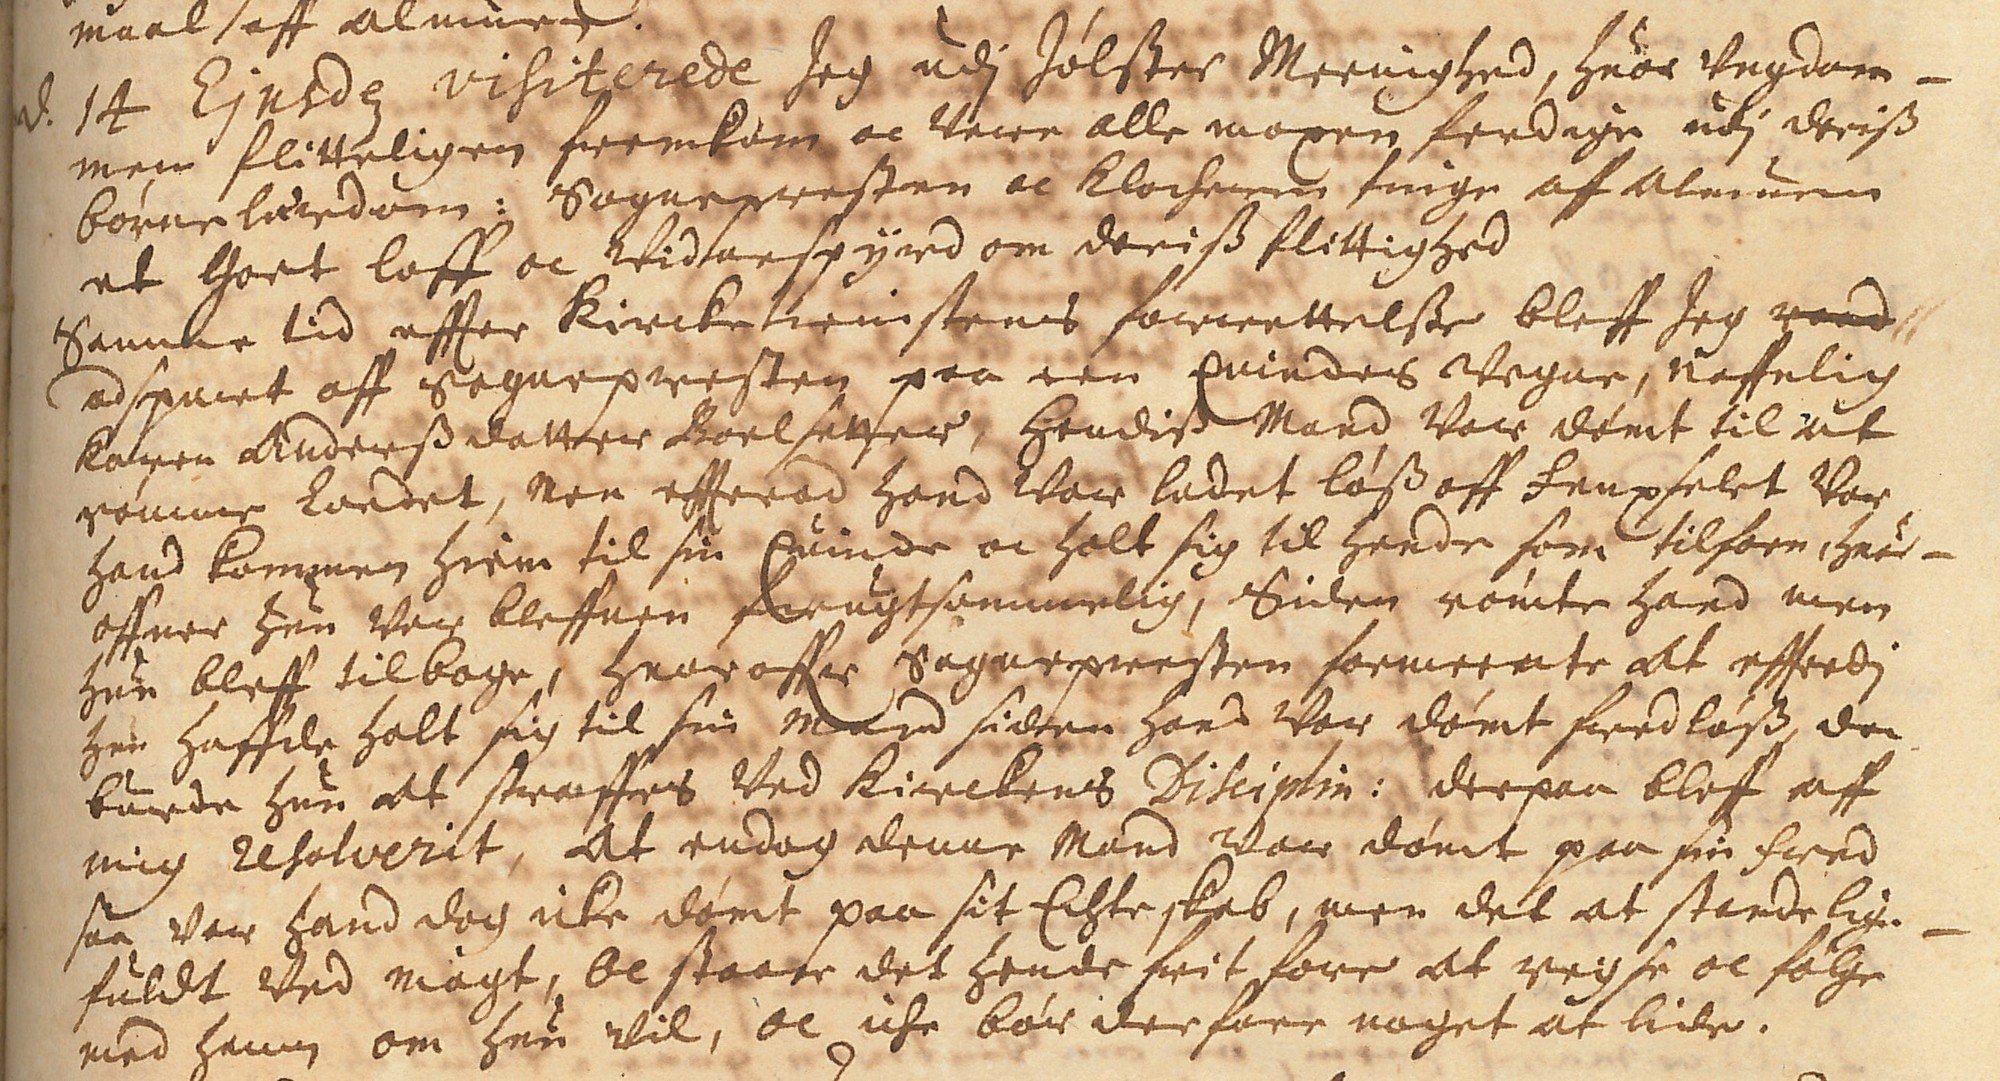 maal aff almuen.
d. 14 Ejusdem visiterede Jeg udj Jølster Meenighed, huor Ungdom-
men flitteligen fremkom oc vare alle maxen ferdige udj deris
børnelærdom: Sognepresten oc Klockeren finge aff almuen
et Goet loff oc Vidnesbyrd om deris flittighed
Samme tid effter Kircketienistens forrettelse bleff Jeg raad
adspuret aff Sognepresten paa een Quindes Vegne, naffnlig
Karen Andersdatter, hendis Mand var dømt til at
rømme Landet, Men effterad hand var ladet løs aff fengselet var
hand kommen hiem til sin Quinde oc holt sig til hende som tilforn, huor-
offuer hun var bleffuen frugtsommelig, Siden rømte hand men
hun bleff tilbage, huoroffuer Sognepresten formeente at effterdj
hun haffde holt sig til sin Mand siden hand var dømt fredløs, da
burde hun at straffes ved Kirckens Disciplin: derpaa bleff aff
mig resolverit, At endog denne Mand var dømt paa sin fred
saa var hand dog icke dømt paa sit Echteskab, men det at standelige
fuldt ved magt, Oc staar det hende frit fore at reyse oc følge
med hannem om hun vil, oc icke bør derfore noget at lide.